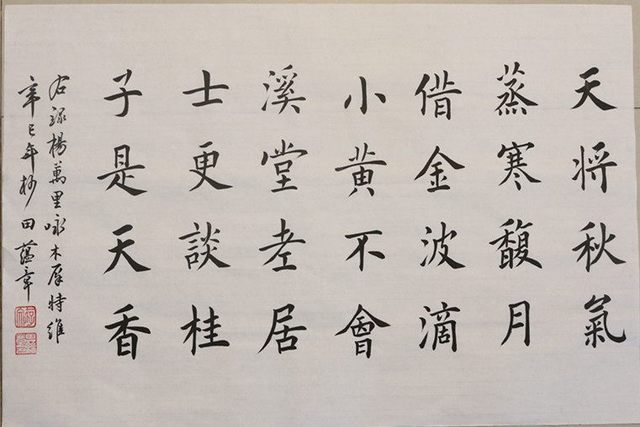 天将秋氣
蒸寒馥月
借金波滴
小黄不會
溪堂老居
士更談桂
子是天香
右録楊萬里咏木犀特維
辛巳年抄田蕴章